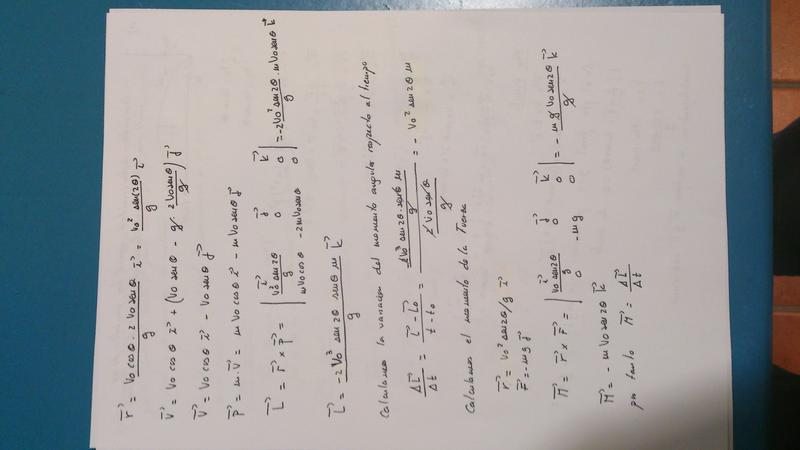 r⃗ = V₀ cosθ · 2 V₀ senθ / g i⃗ = V₀² sen(2θ) / g i⃗
V⃗ = V₀ cosθ i⃗ + (V₀ senθ - g · 2V₀ senθ / g) j⃗
V⃗ = V₀ cosθ i⃗ - V₀ senθ j⃗
P⃗ = m·V⃗ = mV₀ cosθ i⃗ - mV₀ senθ j⃗
L⃗ = r⃗ × P⃗ = | i⃗ j⃗ k⃗ ; V₀² sen2θ / g 0 0 ; mV₀ cosθ -2mV₀ senθ 0 | = -2V₀² sen2θ · mV₀ senθ / g k⃗
L⃗ = -2V₀³ sen2θ senθ m / g k⃗
Calculamos la variación del momento angular respecto al tiempo
ΔL⃗ / Δt = L⃗ - L⃗₀ / t - t₀ = 2V₀³ sen2θ · senθ m / g / 2V₀ senθ / g = - V₀² sen2θ m
Calculamos el momento de la Fuerza
r⃗ = V₀² sen2θ/g i⃗
F⃗ = -mg j⃗
M⃗ = r⃗ × F⃗ = | i⃗ j⃗ k⃗ ; V₀ sen2θ / g 0 0 ; 0 -mg 0 | = - mg V₀ sen2θ / g k⃗
M⃗ = - m V₀ sen2θ k⃗
por tanto M⃗ = ΔL⃗ / Δt